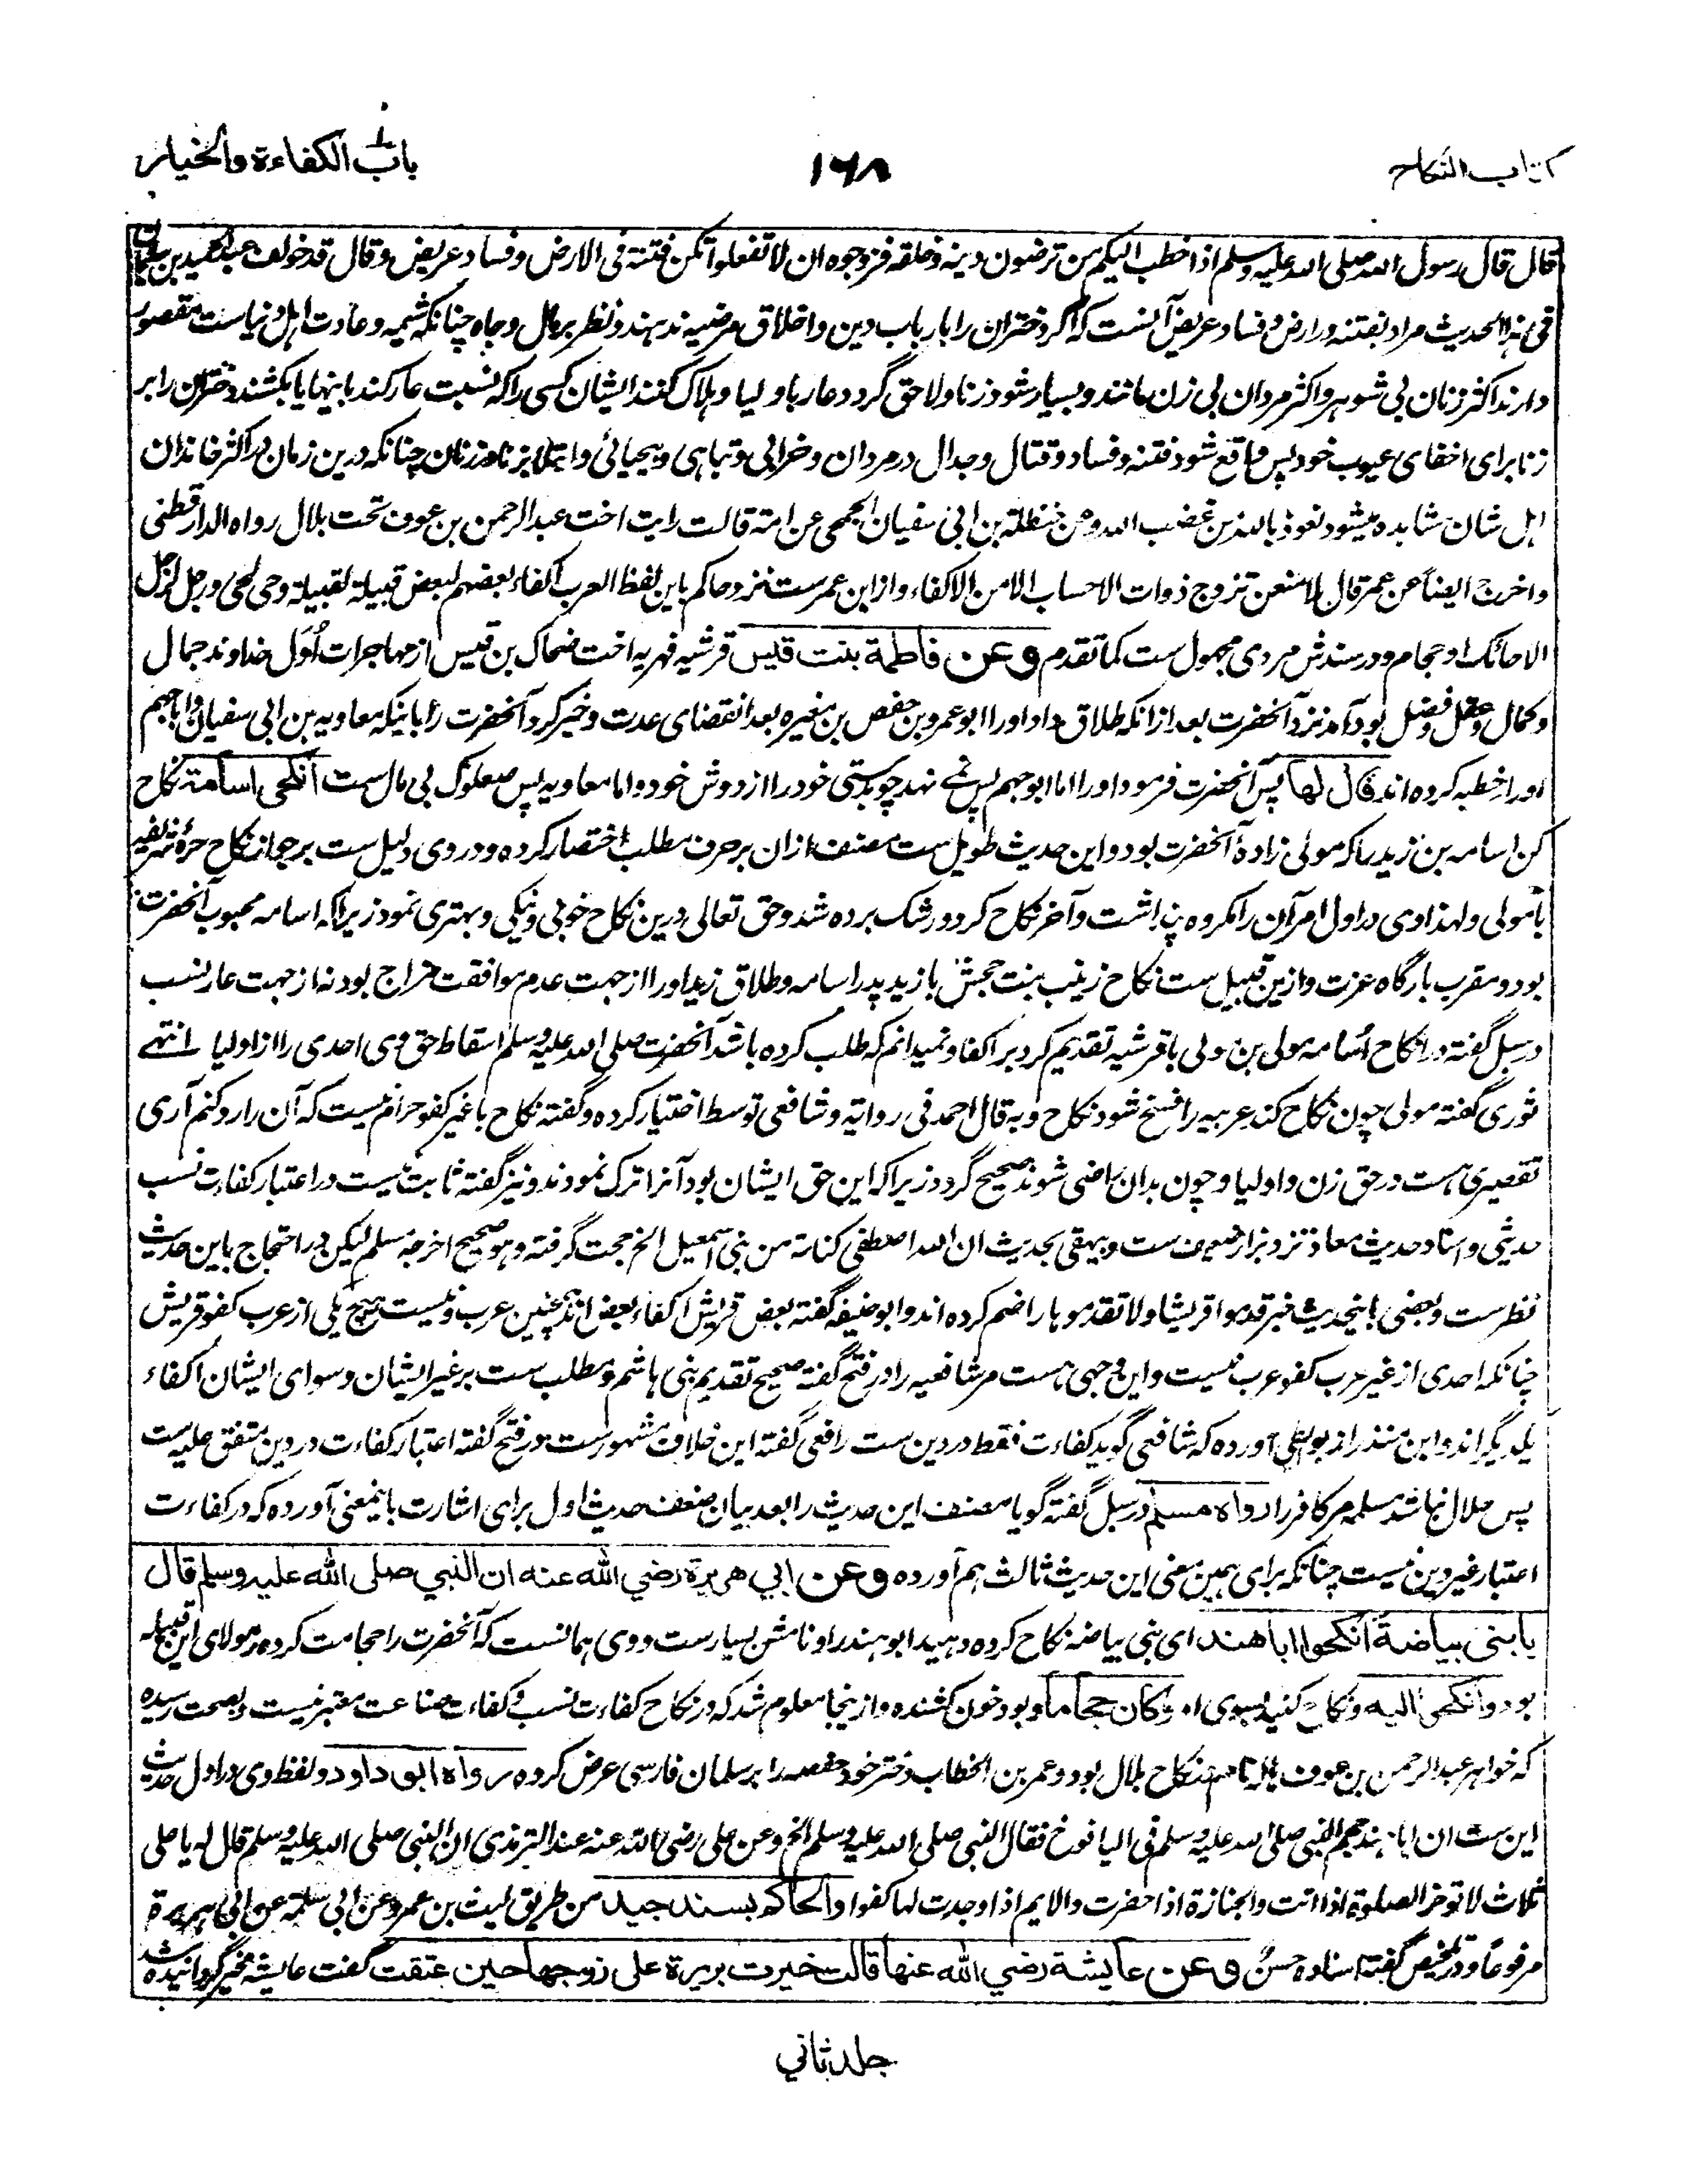 كتاب النكاح
١٦٨
باب الكفاءة والخيار
قال قال رسول الله صلى الله عليه وسلم اذا خطب اليكم من ترضون دينه وخلقه فزوجوه ان لا تفعلوا تكن فتنة فى الارض وفساد عريض وقال قد خولف عبد الحميد بن سليمان
فى هذا الحديث مراد بفتنه در ارض و فساد عريض آنست كه اگر دختران را بارباب دين و اخلاق مرضيه ندهند و نظر بر مال و جاه چنانكه شيمه و عادت اهل دنياست مقصور
دارند اكثر زنان بى شوهر و اكثر مردان بى زن مانند و بسيار شود زنا و لاحق گردد عار باوليا و هلاك كنند ايشان كسى را كه نسبت عار كند باينها يا بكشند دختران را بر
زنا براى اخفاى عيوب خود پس واقع شود فتنه و فساد و قتال و جدال در مردان و خرابى و تباهى و بيحيائى و ابتلا بزنا در زنان چنانكه درين زمان در اكثر خاندان
اهل شان مشاهده ميشود نعوذ بالله من غضب الله وعن حنظلة بن ابى سفيان الجمحى عن امه قالت رايت اخت عبد الرحمن بن عوف تحت بلال رواه الدارقطنى
واخرج ايضاً عن عمر قال لامنعن تزوج ذوات الاحساب الا من الاكفاء و از ابن عمرست نزد حاكم باين لفظ العرب اكفاء بعضهم لبعض قبيلة لقبيلة وحى لحى ورجل لرجل
الا حائك او حجام و در سندش مردى مجهول ست كما تقدم وعن فاطمة بنت قيس قرشيه فهريه اخت ضحاك بن قيس از مهاجرات اُوَل خداوند جمال
و كمال و عقل و فضل بود آمد نزد آنحضرت بعد ازانكه طلاق داد او را ابو عمرو بن حفص بن مغيره بعد انقضاى عدت و خبر كرد آنحضرت را باينكه معاويه بن ابى سفيان و اباجهم
او را خِطبه كرده اند قال لها پس آنحضرت فرمود او را اما ابوجهم پس نمى نهد چوبدستى خود را از دوش خود و اما معاويه پس صعلوك بى مال ست انكحى اسامة نكاح
كن اسامه بن زيد را كه مولى زادهٔ آنحضرت بود و اين حديث طويل ست مصنف ازان بر حرف مطلب اختصار كرده و در وى دليل ست بر جواز نكاح حرهٔ شريفه
با مولى و لهذا وى در اول امر آن را مكروه پنداشت و آخر نكاح كرد و رشك برده شد و حق تعالى درين نكاح خوبى و نيكى و بهترى نمود زيراكه اسامه محبوب آنحضرت
بود و مقرب بارگاه عزت و ازين قبيل ست نكاح زينب بنت جحش با زيد پدر اسامه و طلاق زيد او را از جهت عدم موافقت مزاج بود نه از جهت عار نسب
در سبل گفته در انكاح اُسامه مولى بن مولى با قرشيه تقديم كرد بر اكفا و نميدانم كه طلب كرده باشد آنحضرت صلى الله عليه وسلم اسقاط حق وى احدى را از اوليا انتهى
ثورى گفته مولى چون نكاح كند عربيه را فسخ شود نكاح و به قال احمد فى رواية و شافعى توسط اختيار كرده و گفته نكاح با غير كفو حرام نيست كه آن را رد كنم آرى
تقصيرى هست در حق زن و اوليا و چون بدان راضى شوند صحيح گردد زيراكه اين حق ايشان بود آنرا ترك نمودند و نيز گفته ثابت نيست در اعتبار كفاءت نسب
حديثى و اسناد حديث معاذ نزد بزار ضعيف ست و بيهقى بحديث ان الله اصطفى كنانة من بنى اسمعيل الخ حجت گرفته و هو صحيح اخرجه مسلم ليكن در احتجاج باين حديث
نظرست و بعضى باينحديث خبر قدموا قريشا ولا تقدموها را ضم كرده اند و ابو حنيفه گفته بعض قريش اكفاء بعض اند همچنين عرب و نيست هيچ يكى از عرب كفو قريش
چنانكه احدى از غير عرب كفو عرب نيست و اين وجهى هست مر شافعيه را در فتح گفته صحيح تقديم بنى هاشم و مطلب ست بر غير ايشان و سواى ايشان اكفاء
يكديگر اند و ابن منذر از بويطى آورده كه شافعى گويد كفاءت فقط در دين ست رافعى گفته اين خلاف مشهورست در فتح گفته اعتبار كفاءت در دين متفق عليه ست
پس حلال نباشد مسلمه مر كافر را رواه مسلم در سبل گفته گويا مصنف اين حديث را بعد بيان ضعف حديث اول براى اشارت باينمعنى آورده كه در كفاءت
اعتبار غير دين نيست چنانكه براى همين معنى اين حديث ثالث هم آورده وعن ابي هريرة رضي الله عنه ان النبي صلى الله عليه وسلم قال
يا بنى بياضة انكحوا ابا هند اى بنى بياضه نكاح كرده دهيد ابو هند را و نامش يسارست و وى همانست كه آنحضرت را حجامت كرده و مولاى اين قبيله
بود وانكحوا اليه و نكاح كنيد بسوى او وكان حجاما و بود خون كشنده و ازينجا معلوم شد كه در نكاح كفاءت نسب و كفاءت صناعت معتبر نيست و بصحت رسيده
كه خواهر عبد الرحمن بن عوف هاله نام بنكاح بلال بود و عمر بن الخطاب دختر خود حفصه را بر سلمان فارسى عرض كرده رواه ابو داود و لفظ وى در اول حديث
اين ست ان ابا هند حجم النبى صلى الله عليه وسلم فى اليافوخ فقال النبى صلى الله عليه وسلم الخ و عن على رضى الله عنه عند الترمذى ان النبى صلى الله عليه وسلم قال له يا على
ثلاث لا تؤخر الصلوة اذا اتت والجنازة اذا حضرت والايم اذا وجدت لها كفوا والحاكم بسند جيد من طريق ليث بن عمرو عن ابى سلمة عن ابى هريرة
مرفوعاً و در تلخيص گفته اسناده حسنٌ وعن عايشة رضي الله عنها قالت خيرت بريرة على زوجها حين عتقت گفت عايشه مخير گردانيده شد
جلد ثاني